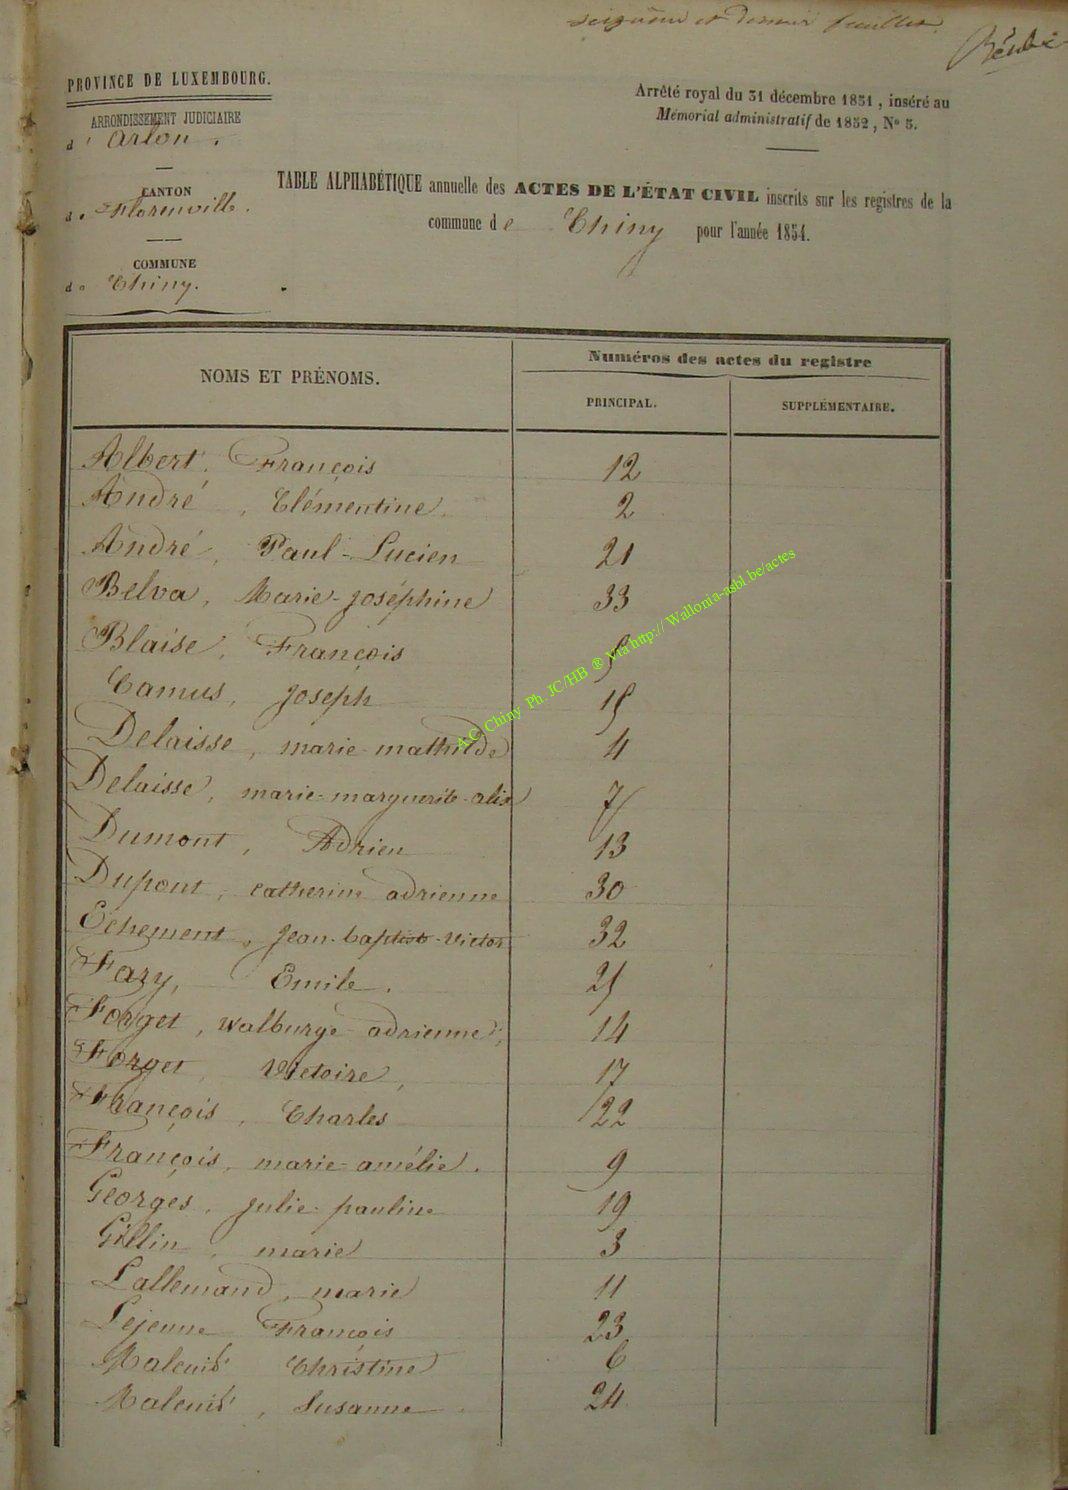 et dernier feuillet.
PROVINCE DE LUXEMBOURG.
ARRONDISSEMENT JUDICIAIRE
d' Arlon.
CANTON
de Florenville.
COMMUNE
de Chiny.
Arrêté royal du 31 décembre 1831, inséré au
Mémorial administratif de 1832, Nº 5.
TABLE ALPHABÉTIQUE annuelle des ACTES DE L'ÉTAT CIVIL inscrits sur les registres de la
commune de Chiny pour l'année 1854.
NOMS ET PRÉNOMS.
Numéros des actes du registre
PRINCIPAL. SUPPLÉMENTAIRE.
Albert, François 12
André, Clémentine 2
André, Paul-Lucien 21
Belva, Marie-Joséphine 33
Blaise, François 5
Camus, Joseph 15
Delaisse, marie-mathilde 4
Delaisse, marie-marguerite-alix 7
Dumont, Adrien 13
Dupont, catherine adrienne 30
Echement, Jean-baptiste-victor 32
Fazy, Emile. 25
Forget, Walburge adrienne, 14
Forget, Victoire, 17
François, Charles 22
François, marie-amélie. 9
Georges, Julie-pauline 19
Gillin, marie 3
Lallemand, marie 11
Lejeune François 23
Christine 6
Susanne 24
A.C. Chiny Ph. JC/HB ® Via http:// Wallonia-asbl.be/actes